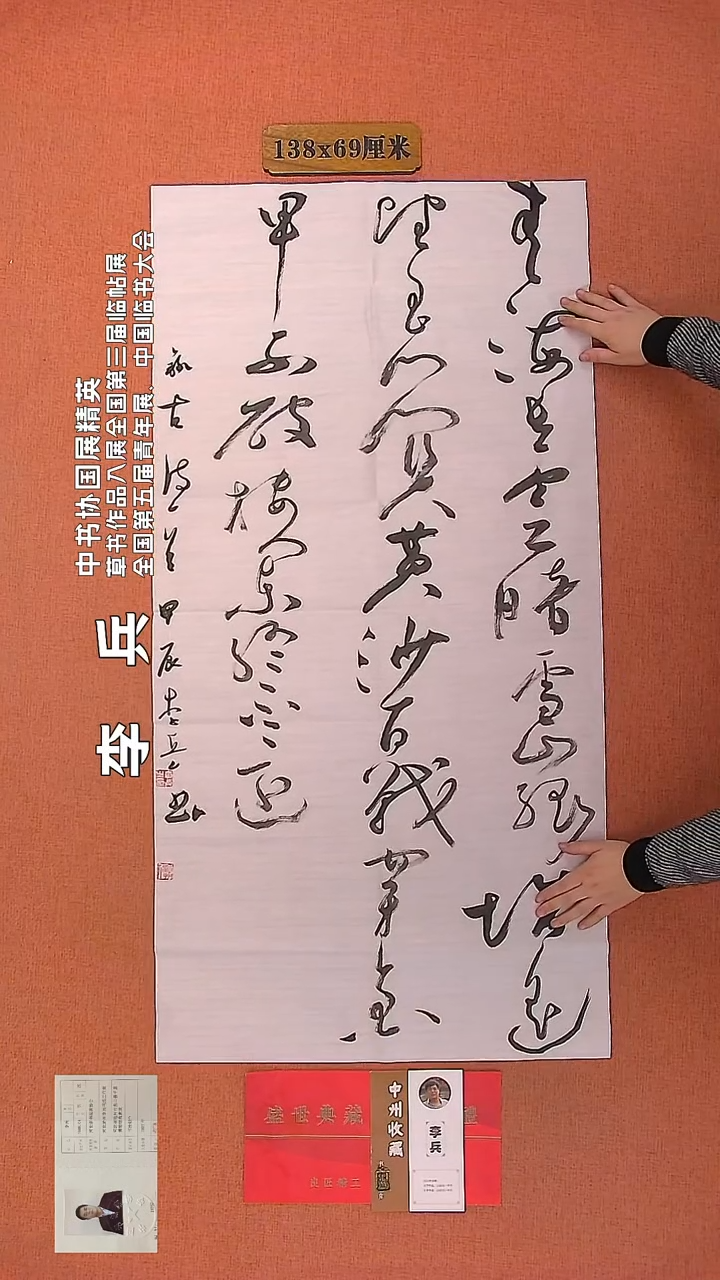 138x69厘米
青海長雲暗雪山孤城遥
望玉门関黄沙百戰穿金
甲不破楼兰终不还
录古诗一首甲辰李兵书
中书协国展精英
草书作品入展全国第三届临帖展
全国第五届青年展、中国临书大会
李兵
盛世典藏
中州收藏
李兵